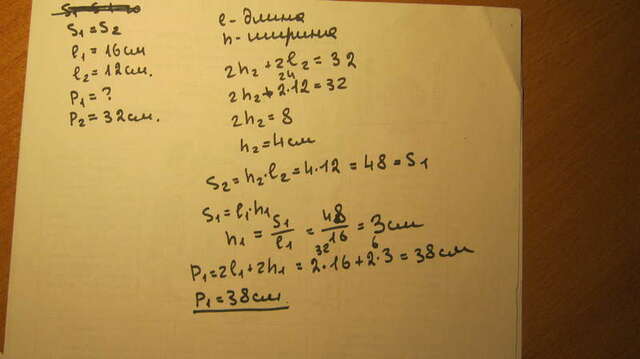 S₁ = S₂
l₁ = 16см
l₂ = 12см.
P₁ = ?
P₂ = 32см.
l - длина
h - ширина
2h₂ + 2l₂ = 32
24
2h₂ + 2·12 = 32
2h₂ = 8
h₂ = 4см
S₂ = h₂·l₂ = 4·12 = 48 = S₁
S₁ = l₁·h₁
h₁ = S₁/l₁ = 48/16 = 3см
32 6
P₁ = 2l₁ + 2h₁ = 2·16 + 2·3 = 38см
P₁ = 38см.